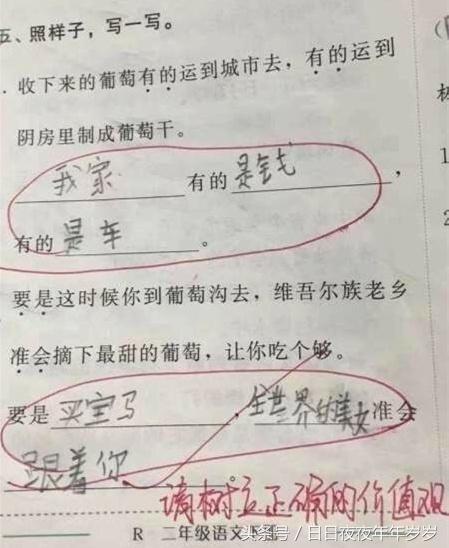 五、照样子，写一写。
收下来的葡萄有的运到城市去，有的运到
阴房里制成葡萄干。
我家有的是钱，
有的是车。
要是这时候你到葡萄沟去，维吾尔族老乡
准会摘下最甜的葡萄，让你吃个够。
要是买宝马，全世界的美女准会
跟着你。
请树立正确的价值观
R 二年级语文下册
头条号 / 日日夜夜年年岁岁
1
2